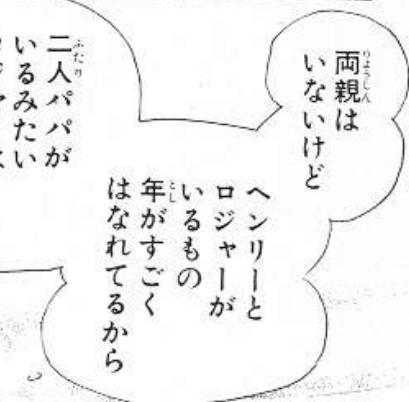 両親は
いないけど
ヘンリーと
ロジャーが
いるもの
年がすごく
はなれてるから
二人パパが
いるみたい